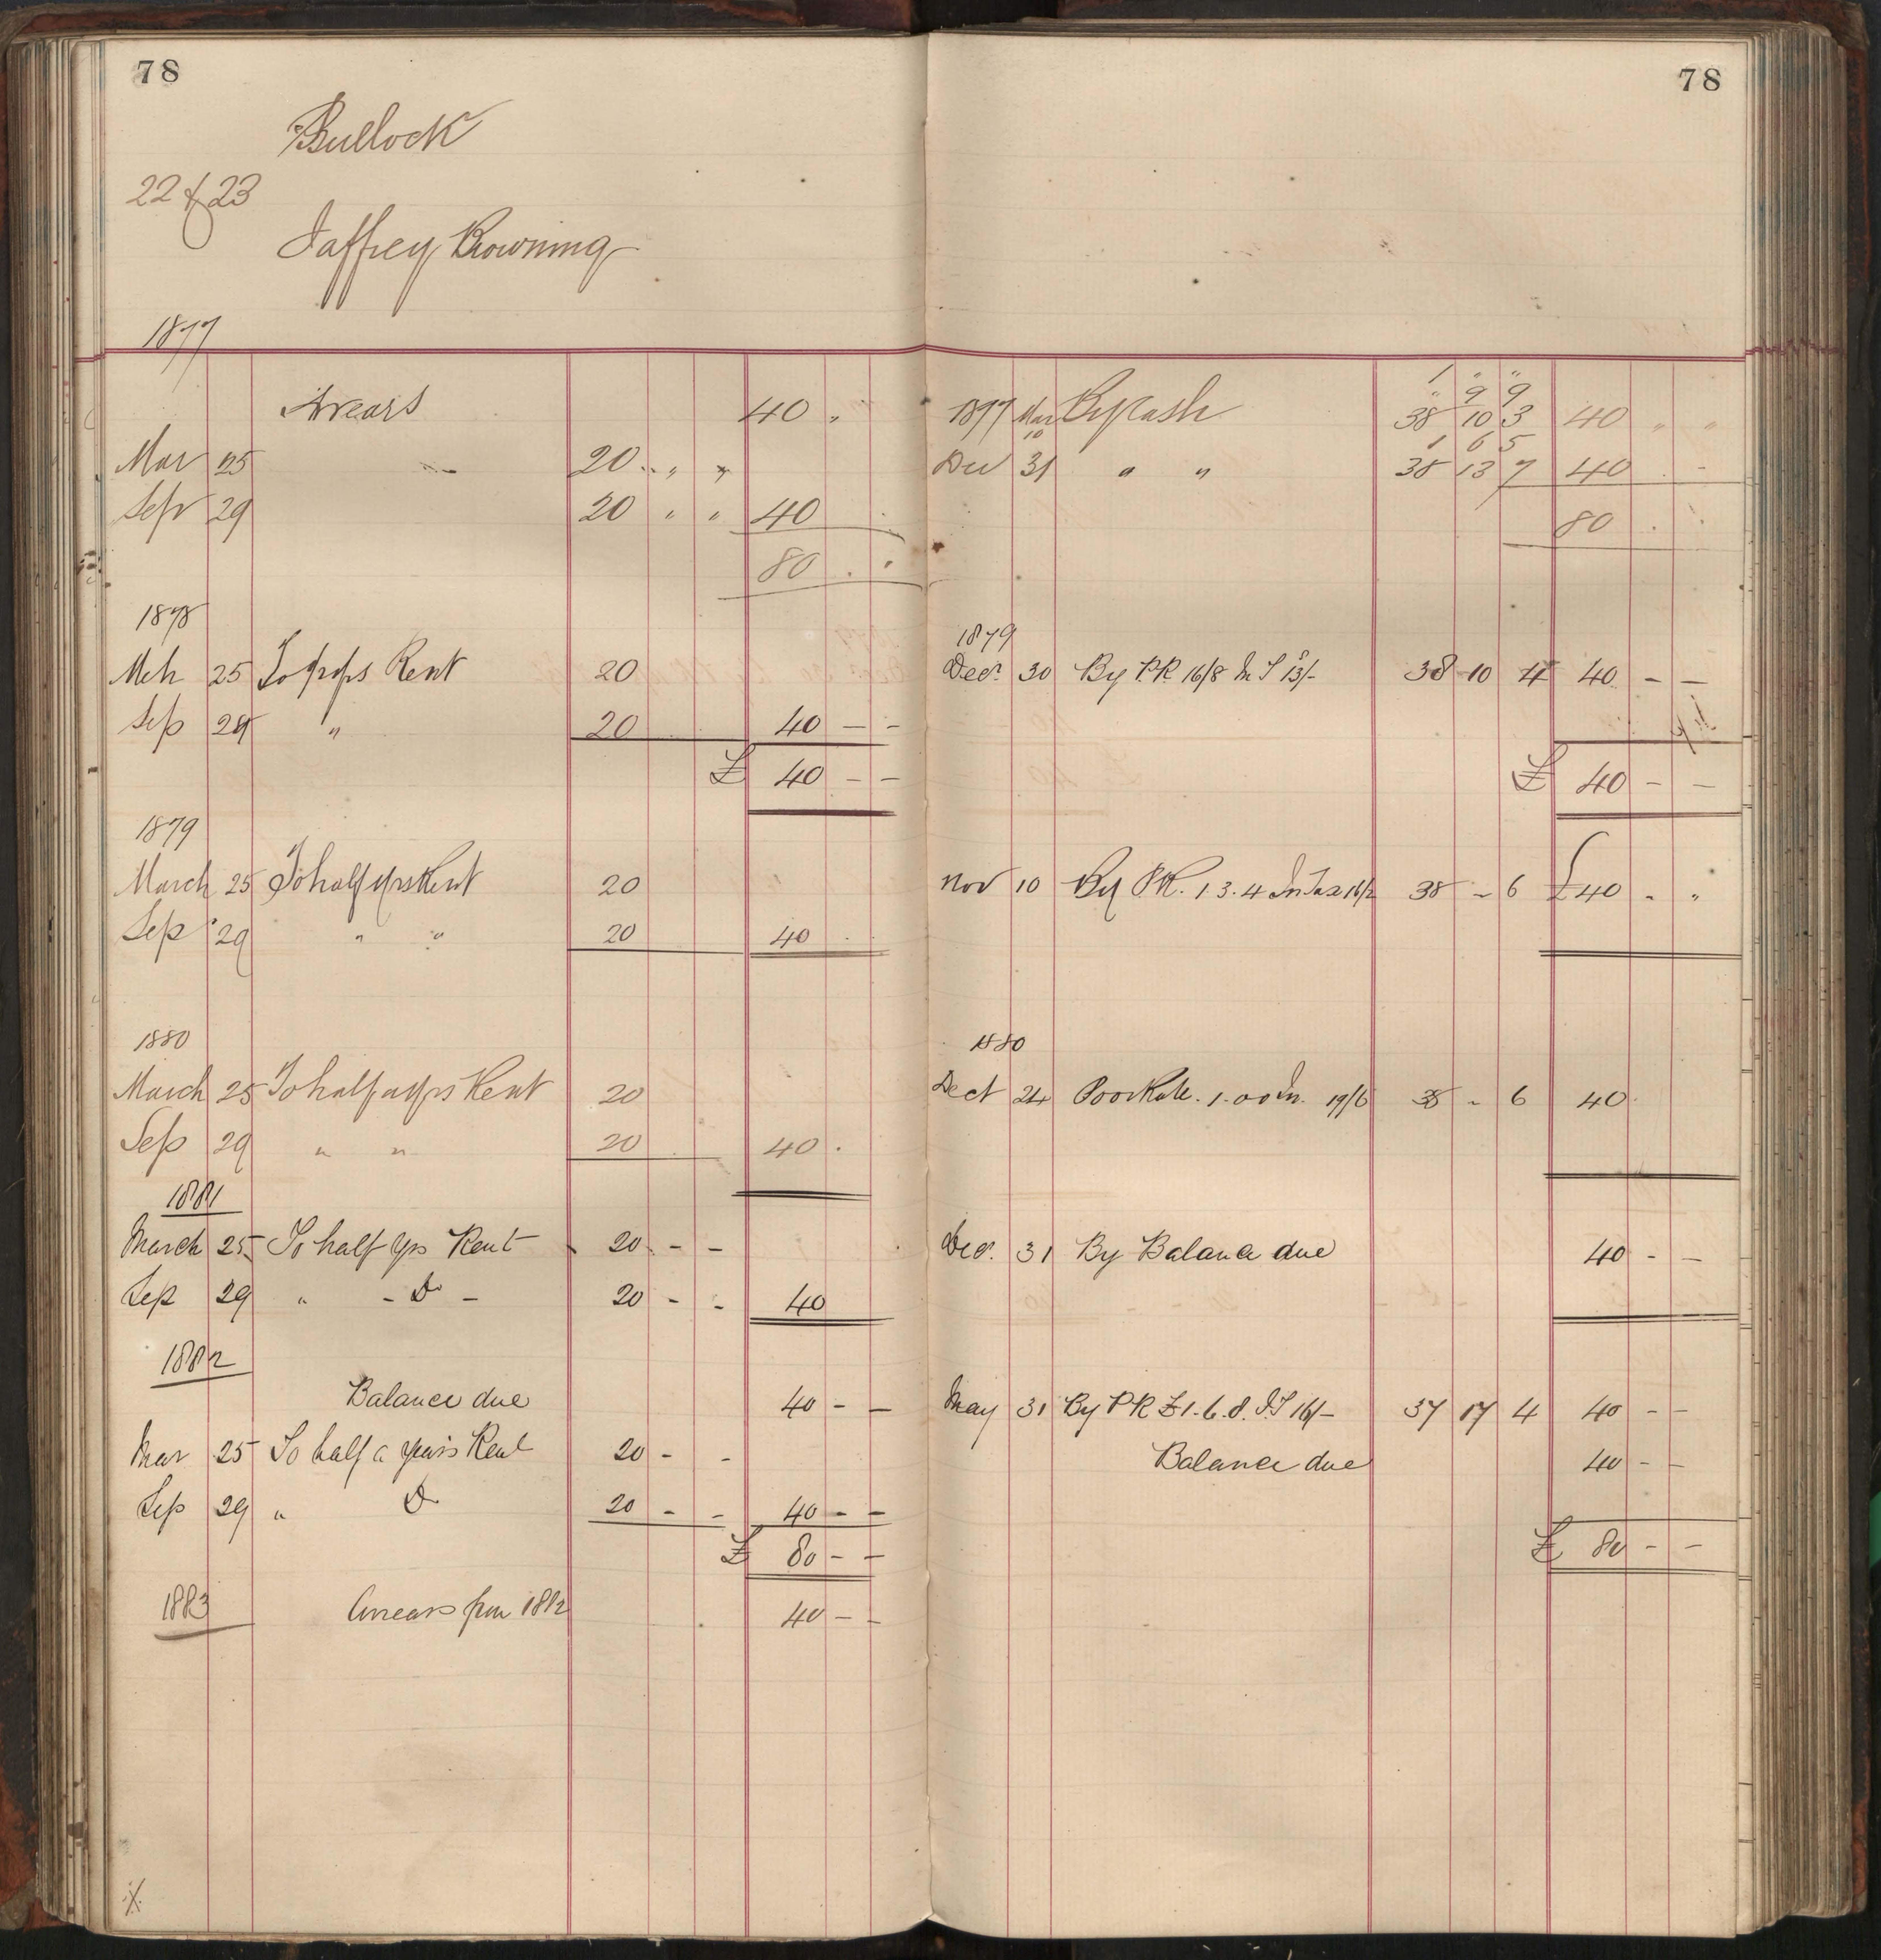 78
Bullock
22 & 23
Jaffrey Browning
1877
Arrears 40 "
Mar 25 20 " "
Sep 29 20 " " 40
80 . .
1878
Mch 25 Rent 20
Sep 29 " 20 40 — —
£ 40 — —
1879
March 25 To half yrs Rent 20
Sep 29 " " 20 40
1880
March 25 To half a yrs Rent 20
Sep 29 " " 20 40 .
1881
March 25 To half yrs Rent 20 - -
Sep 29 " - Do - 20 - - 40
1882
Balance due 40 - -
Mar 25 To half a years Rent 20 - -
Sep 29 " Do 20 - - 40 - -
£ 80 - -
1883 Arrears from 1882 40 - -
78
1 " "
" 9 9
1877 Mar 10 By Cash 38 10 3 40 " "
1 6 5
Dec 31 " " 38 13 7 40 . -
80 . .
1879
Decr 30 By P.R. 16/8 13/- 38 10 4 40 — —
£ 40 — —
Nov 10 By P.R. 1.3.4 In Tax 16/2 38 - 6 £40 " "
1880
Dec 24 Poor Rate. 1.0.0 In. 19/6 38 - 6 40
Decr. 31 By Balance due 40 - -
May 31 By P R £1.6.8. I.T 16/- 37 17 4 40 - -
Balance due 40 - -
£ 80 - -